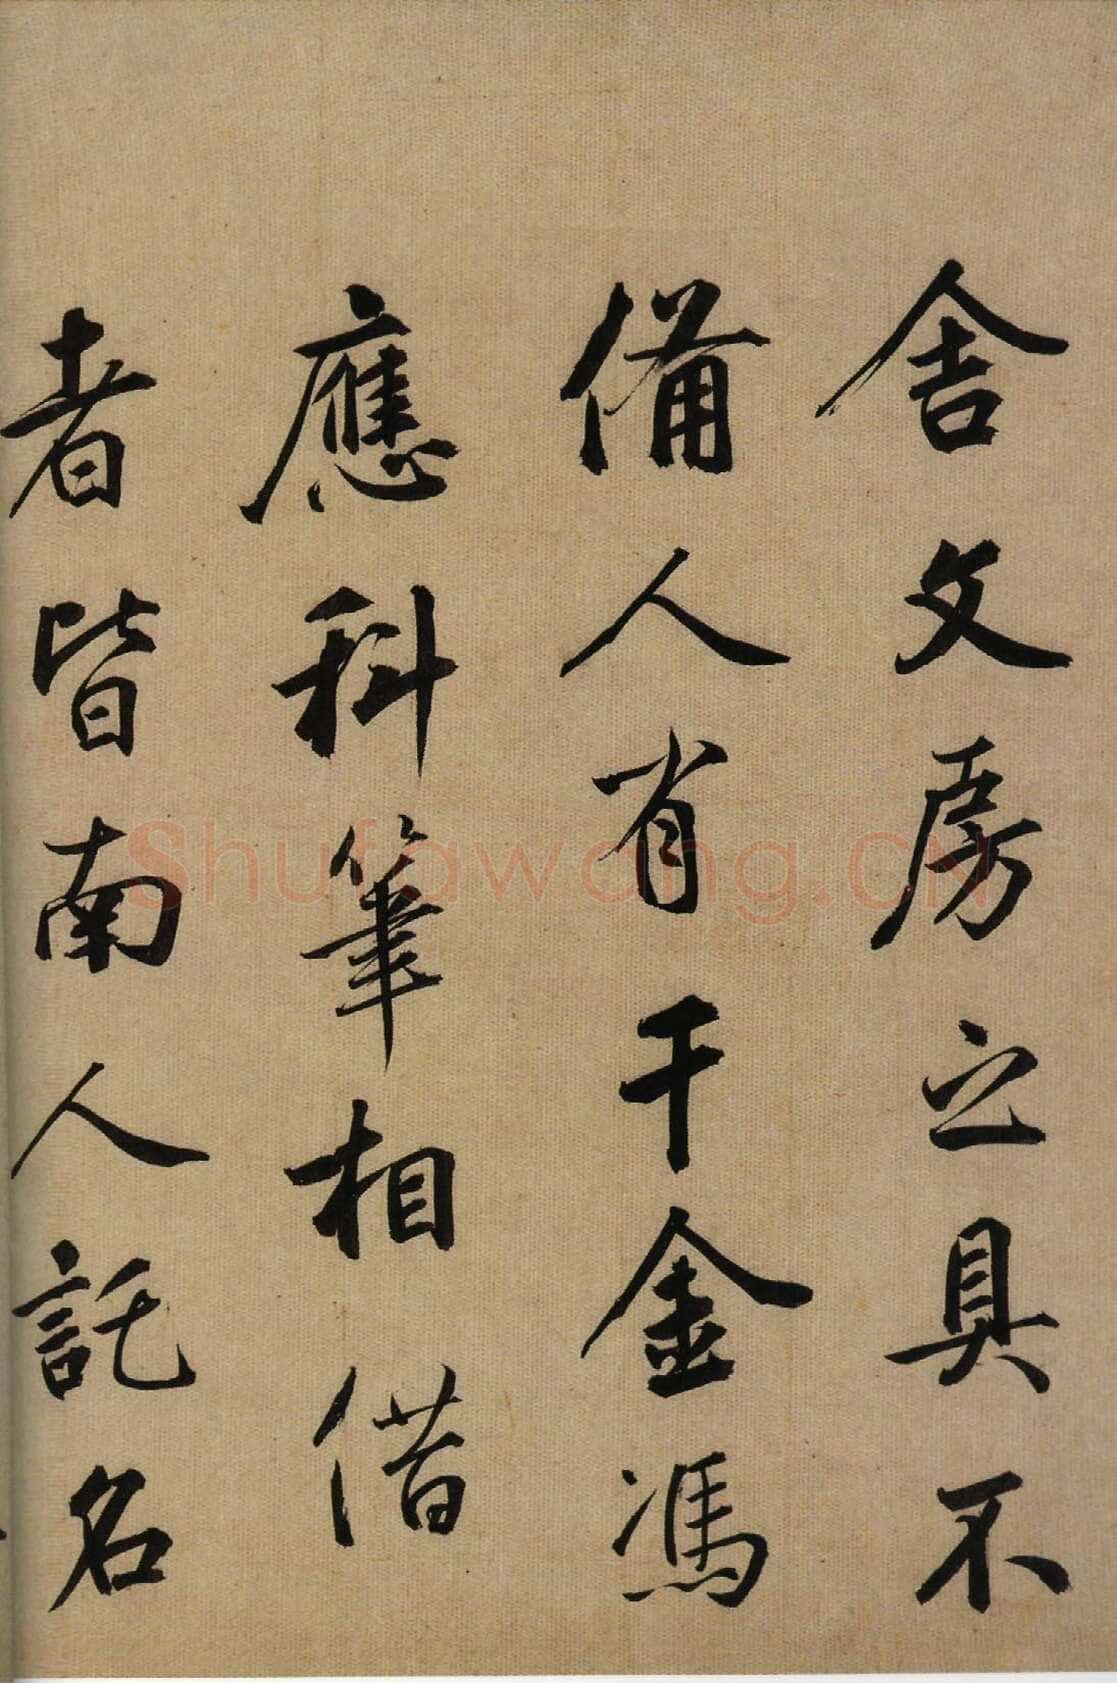 舍文房之具不
備人有千金馮
應科筆相借
者皆南人託名
Shufawang.CN